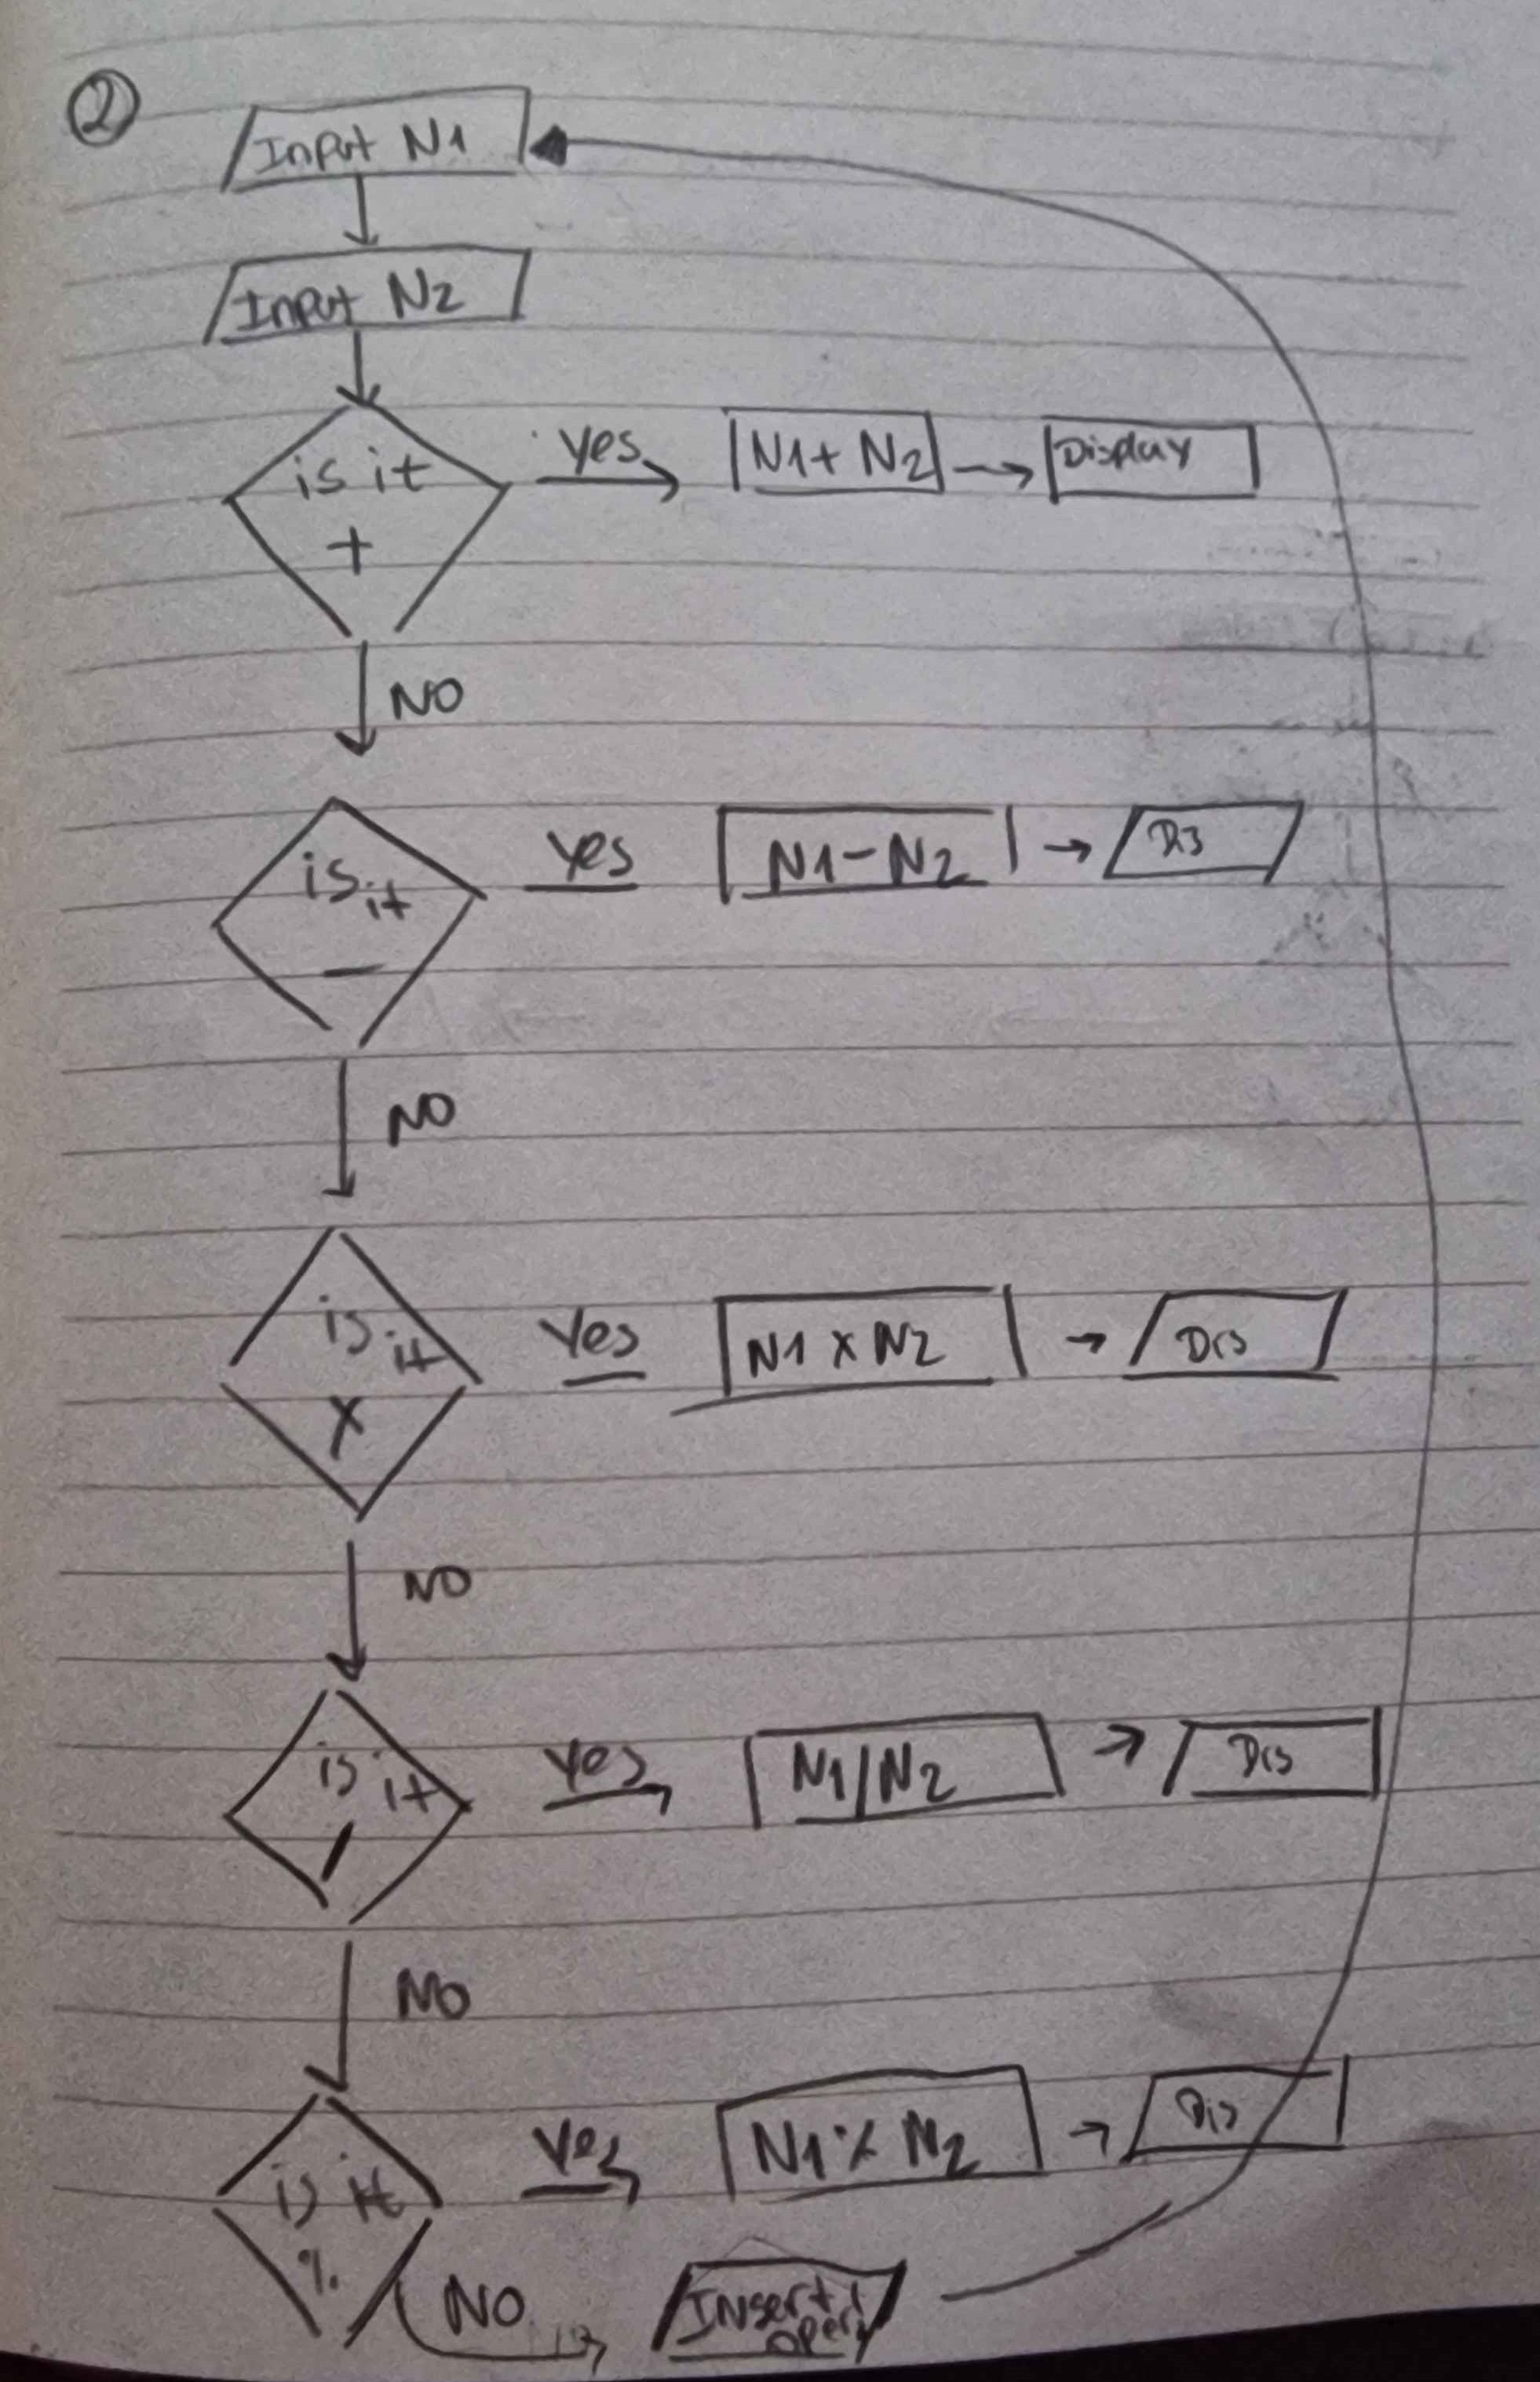 2
Input N1
Input N2
is it
+
yes
N1+ N2
Display
NO
is it
–
yes
N1 – N2
Dis
NO
is it
X
Yes
N1 x N2
Dis
NO
is it
/
yes
N1/N2
Dis
NO
is it
%
Yes
N1 % N2
Dis
NO
Insert